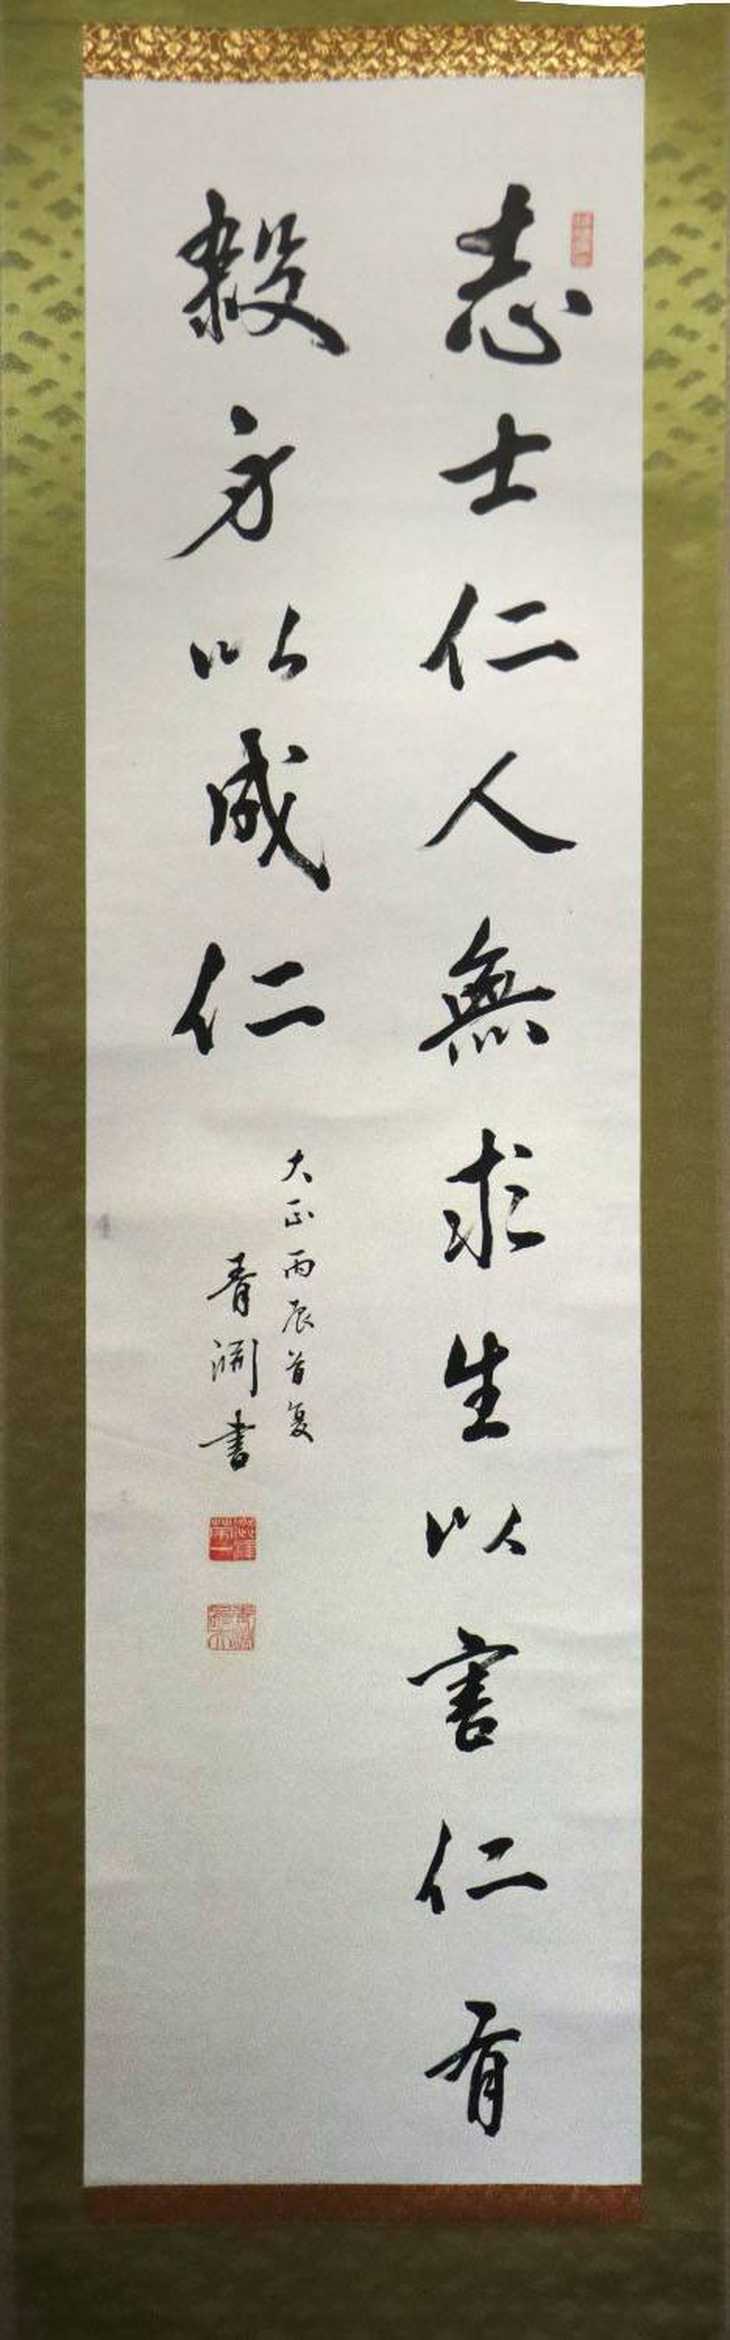 志士仁人無求生以害仁有
殺身以成仁
大正丙辰首夏
青淵書